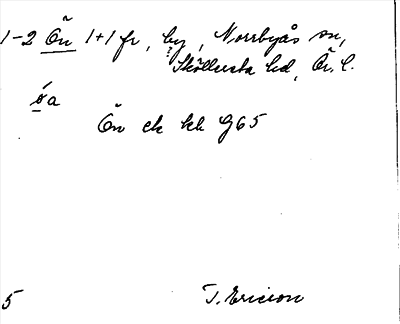 1-2 Ön 1+1 fr, by, Norrbyås sn,
Sköllersta hd, Ör. l.
öa
Ön ek kb G65
5 T. Ericson